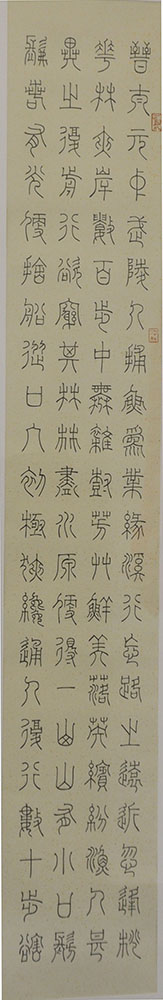 晉太元中武陵人捕魚為業緣溪行忘路之遠近忽逢桃
華林夾岸數百步中無雜樹芳艸鮮美落英繽紛漁人甚
異之復前行欲窮其林林盡水原便得一山山有小口髣
髴若有光便捨船從口入初極狹纔通人復行數十步豁